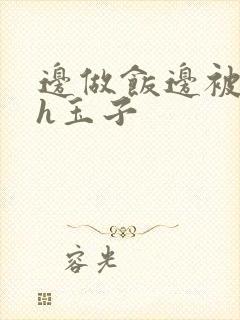 邊做飯邊被
h玉子
容光